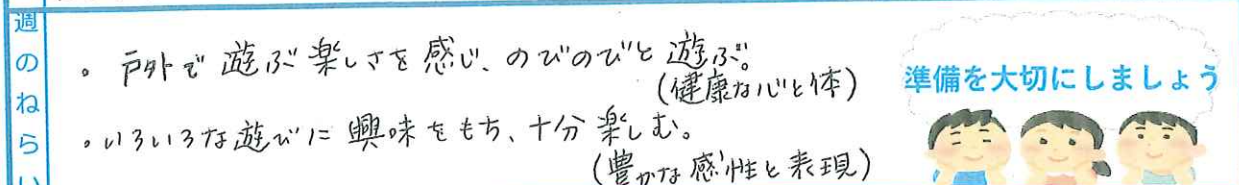 週のねらい
。戸外で遊ぶ楽しさを感じ、のびのびと遊ぶ。
(健康な心と体)
。いろいろな遊びに興味をもち、十分楽しむ。
(豊かな感性と表現)
準備を大切にしましょう